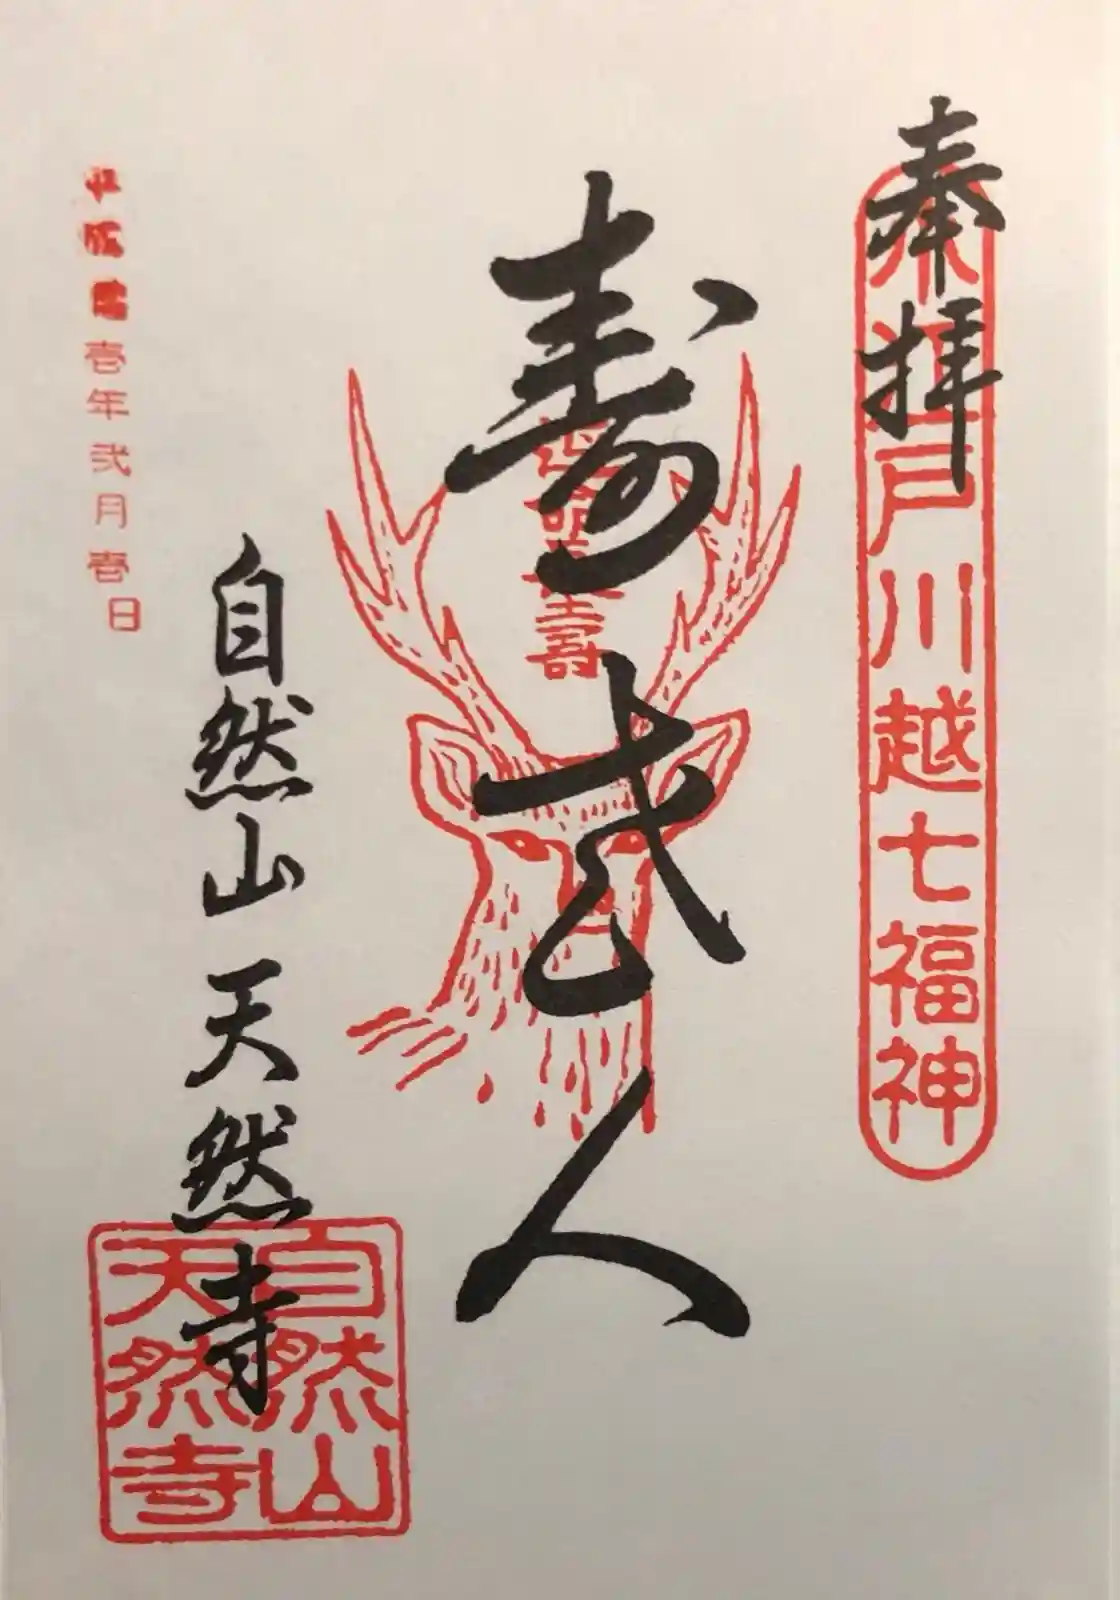 奉拝
小江戸川越七福神
寿老人
自然山天然寺
自然山
天然寺
壱年弐月壱日